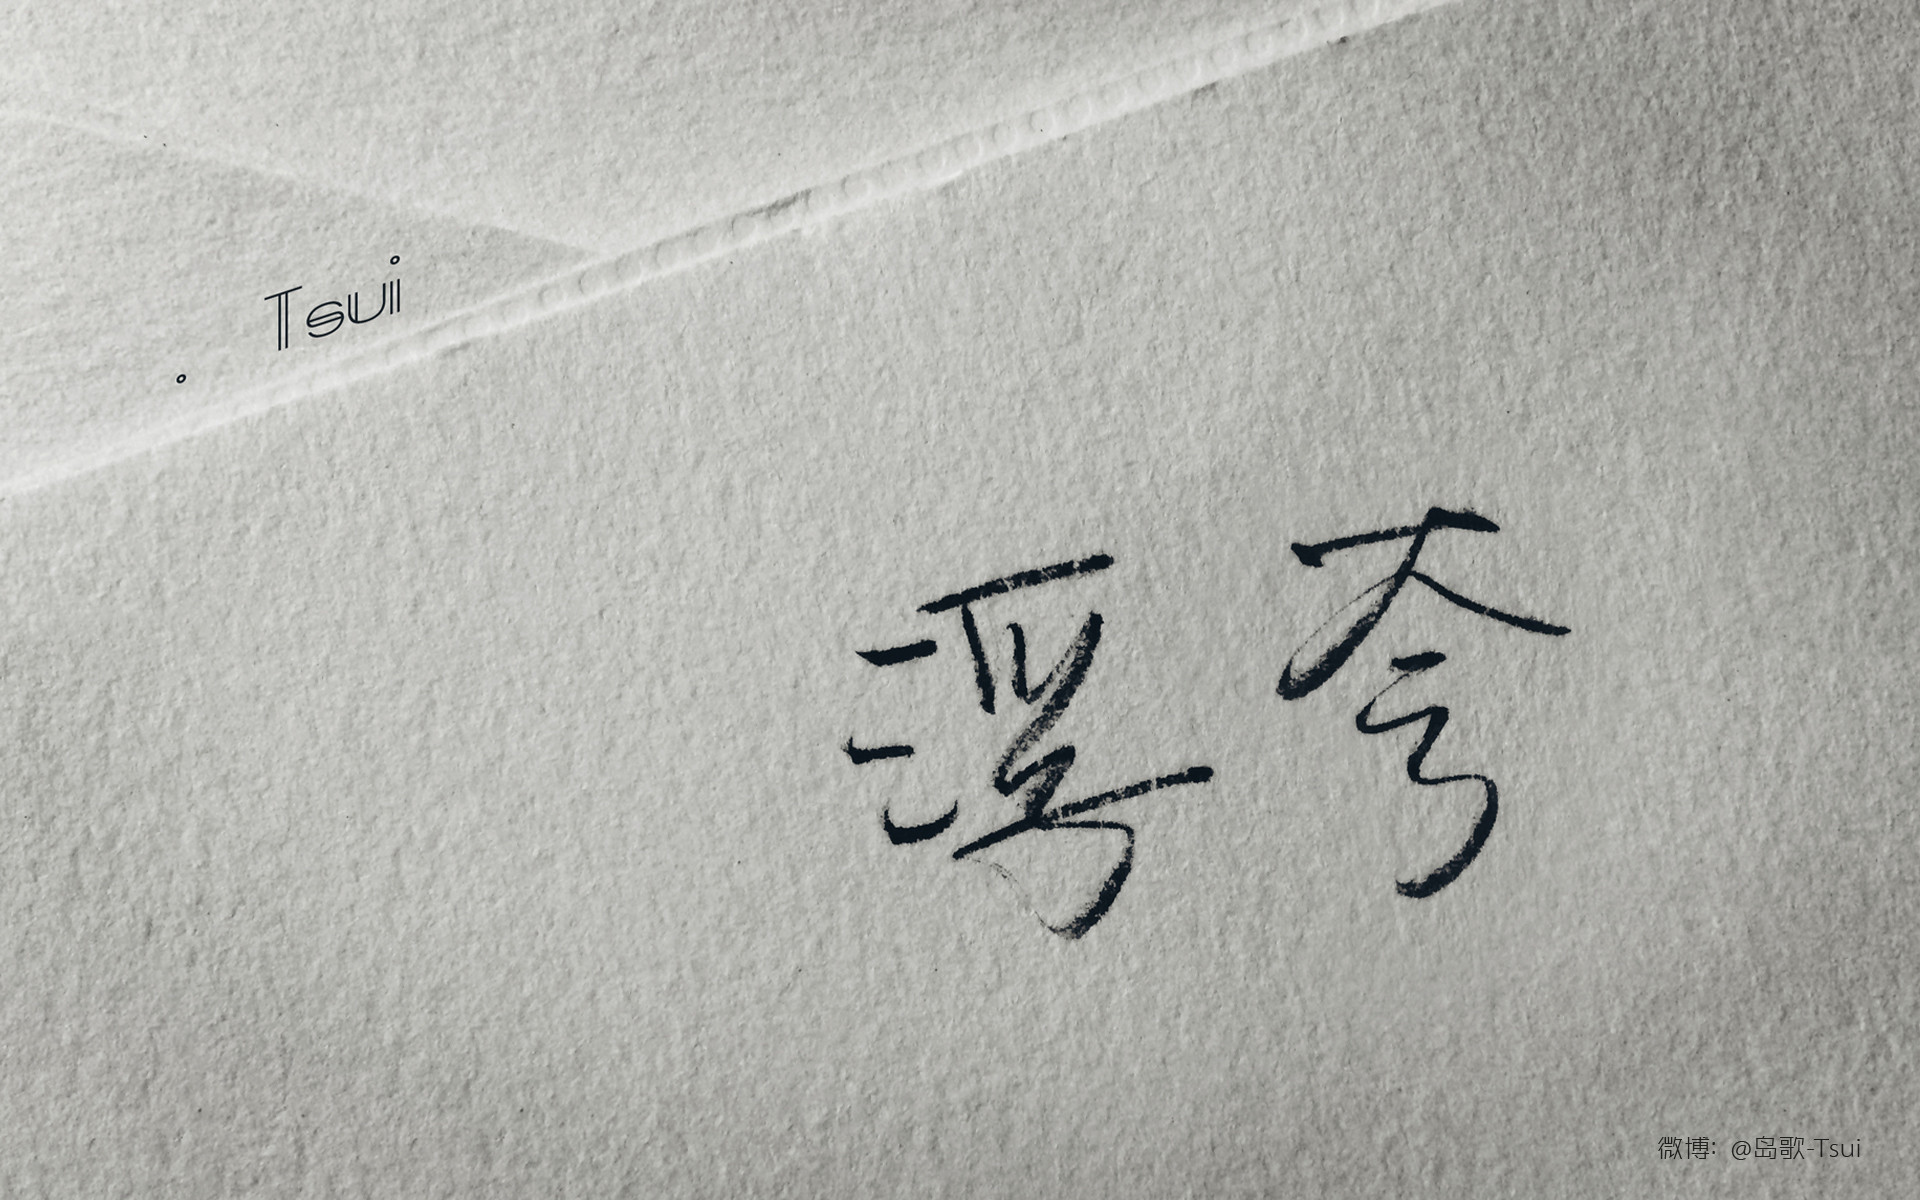 Tsui
浮夸
微博: @岛歌-Tsui